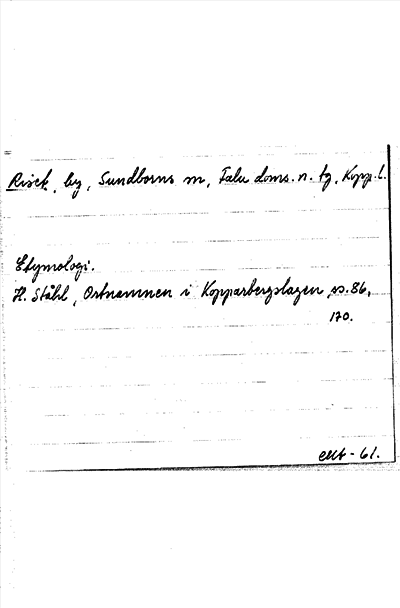 Risek, by, Sundborns sn, Falu doms. n. tg, Kopp. l.
Etymologi.
H. Ståhl, Ortnamnen i Kopparbergslagen, s. 86,
170.
-61.